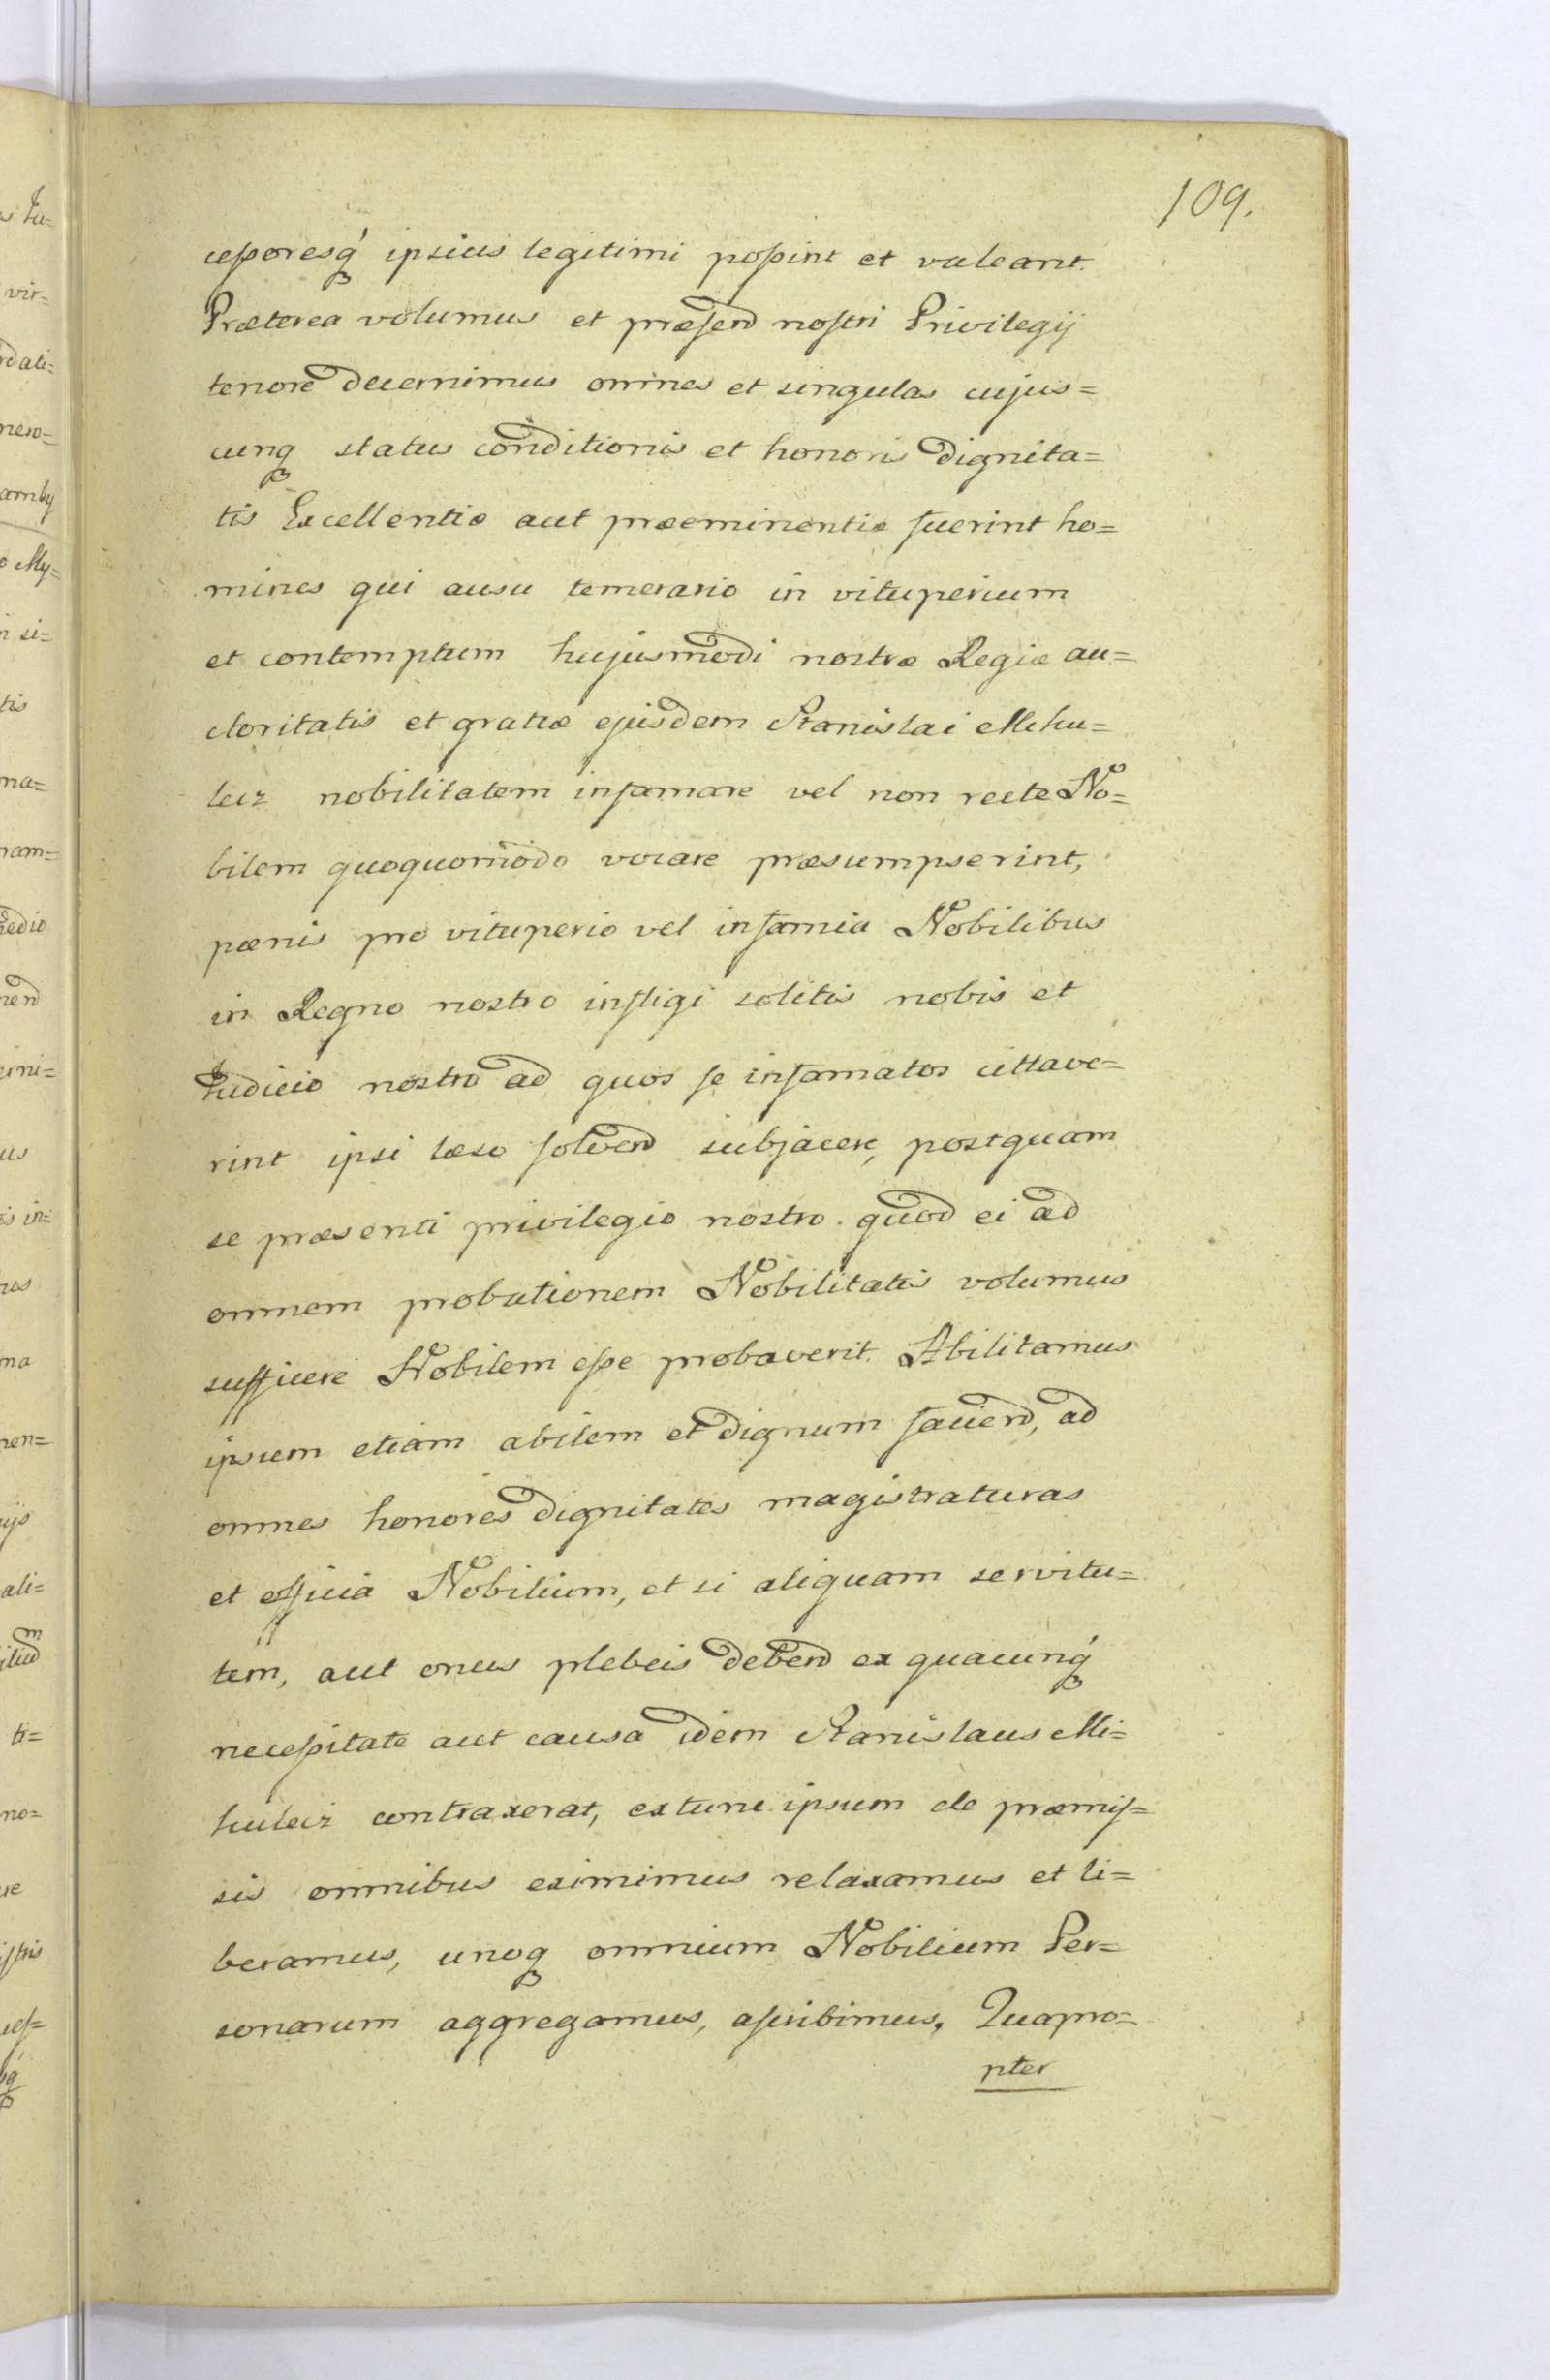 109.
cessoresq́ ipsius legitimi possint et valeant.
Præterea volumus et præsend nostri Privilegij
tenore decernimus omnes et singulas cujus=
cunq status conditionis et honoris dignita=
tis Excellentiæ aut præeminentiæ fuerint ho=
mines qui ausu temerario in vituperium
et contemptum hujusmodi nostræ Regiæ au=
ctoritatis et gratiæ ejusdem Stanislai Mihu=
lecz nobilitatem infamare vel non recte No=
bilem quoquomodo vocare præsumpserint,
pœnis pro vituperio vel infamia Nobilibus
in Regno nostro infligi solitis nobis et
Iudicio nostro ad quos se infamatos cittave=
rint ipsi læso solvend subjacere, postquam
se præsenti privilegio nostro quod ei ad
omnem probationem Nobilitatis volumus
sufficere Nobilem esse probaverit. Abilitamus
ipsum etiam abilem et dignum faciend, ad
omnes honores dignitates magistraturas
et officia Nobilium, et si aliquam servitu=
tem, aut onus plebeis debend ex quacunq́
necessitate aut causa idem Stanislaus Mi=
hulecz contraxerat, extunc ipsum de præmis=
sis omnibus eximimus relaxamus et li=
beramus, unoq omnium Nobilium Per=
sonarum aggregamus, ascribimus. Quapro=
pter
ali=
ti=
no=